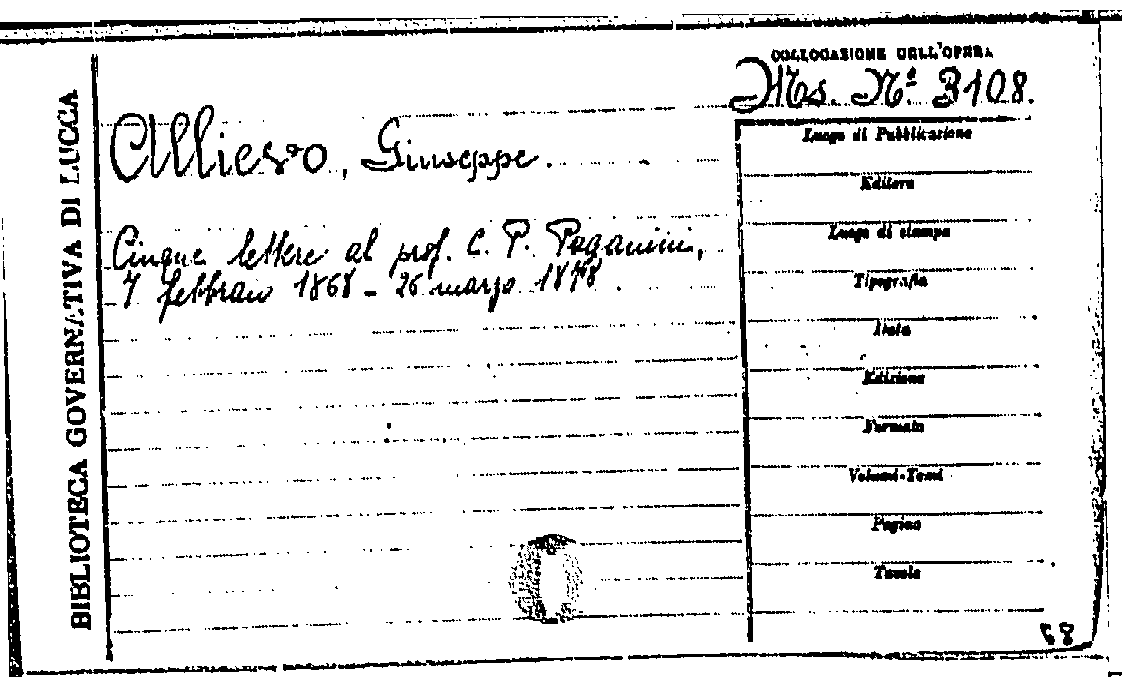 BIBLIOTECA GOVERNATIVA DI LUCCA
COLLOCAZIONE DELL'OPERA
Ms. Nº 3108.
Allievo, Giuseppe.
Cinque lettere al prof. C. P. Paganini,
7 febbraio 1868 - 26 marzo 1878.
Luogo di Pubblicazione
Editore
Luogo di stampa
Tipografia
Data
Edizione
Formato
Volumi-Tomi
Pagine
Tavole